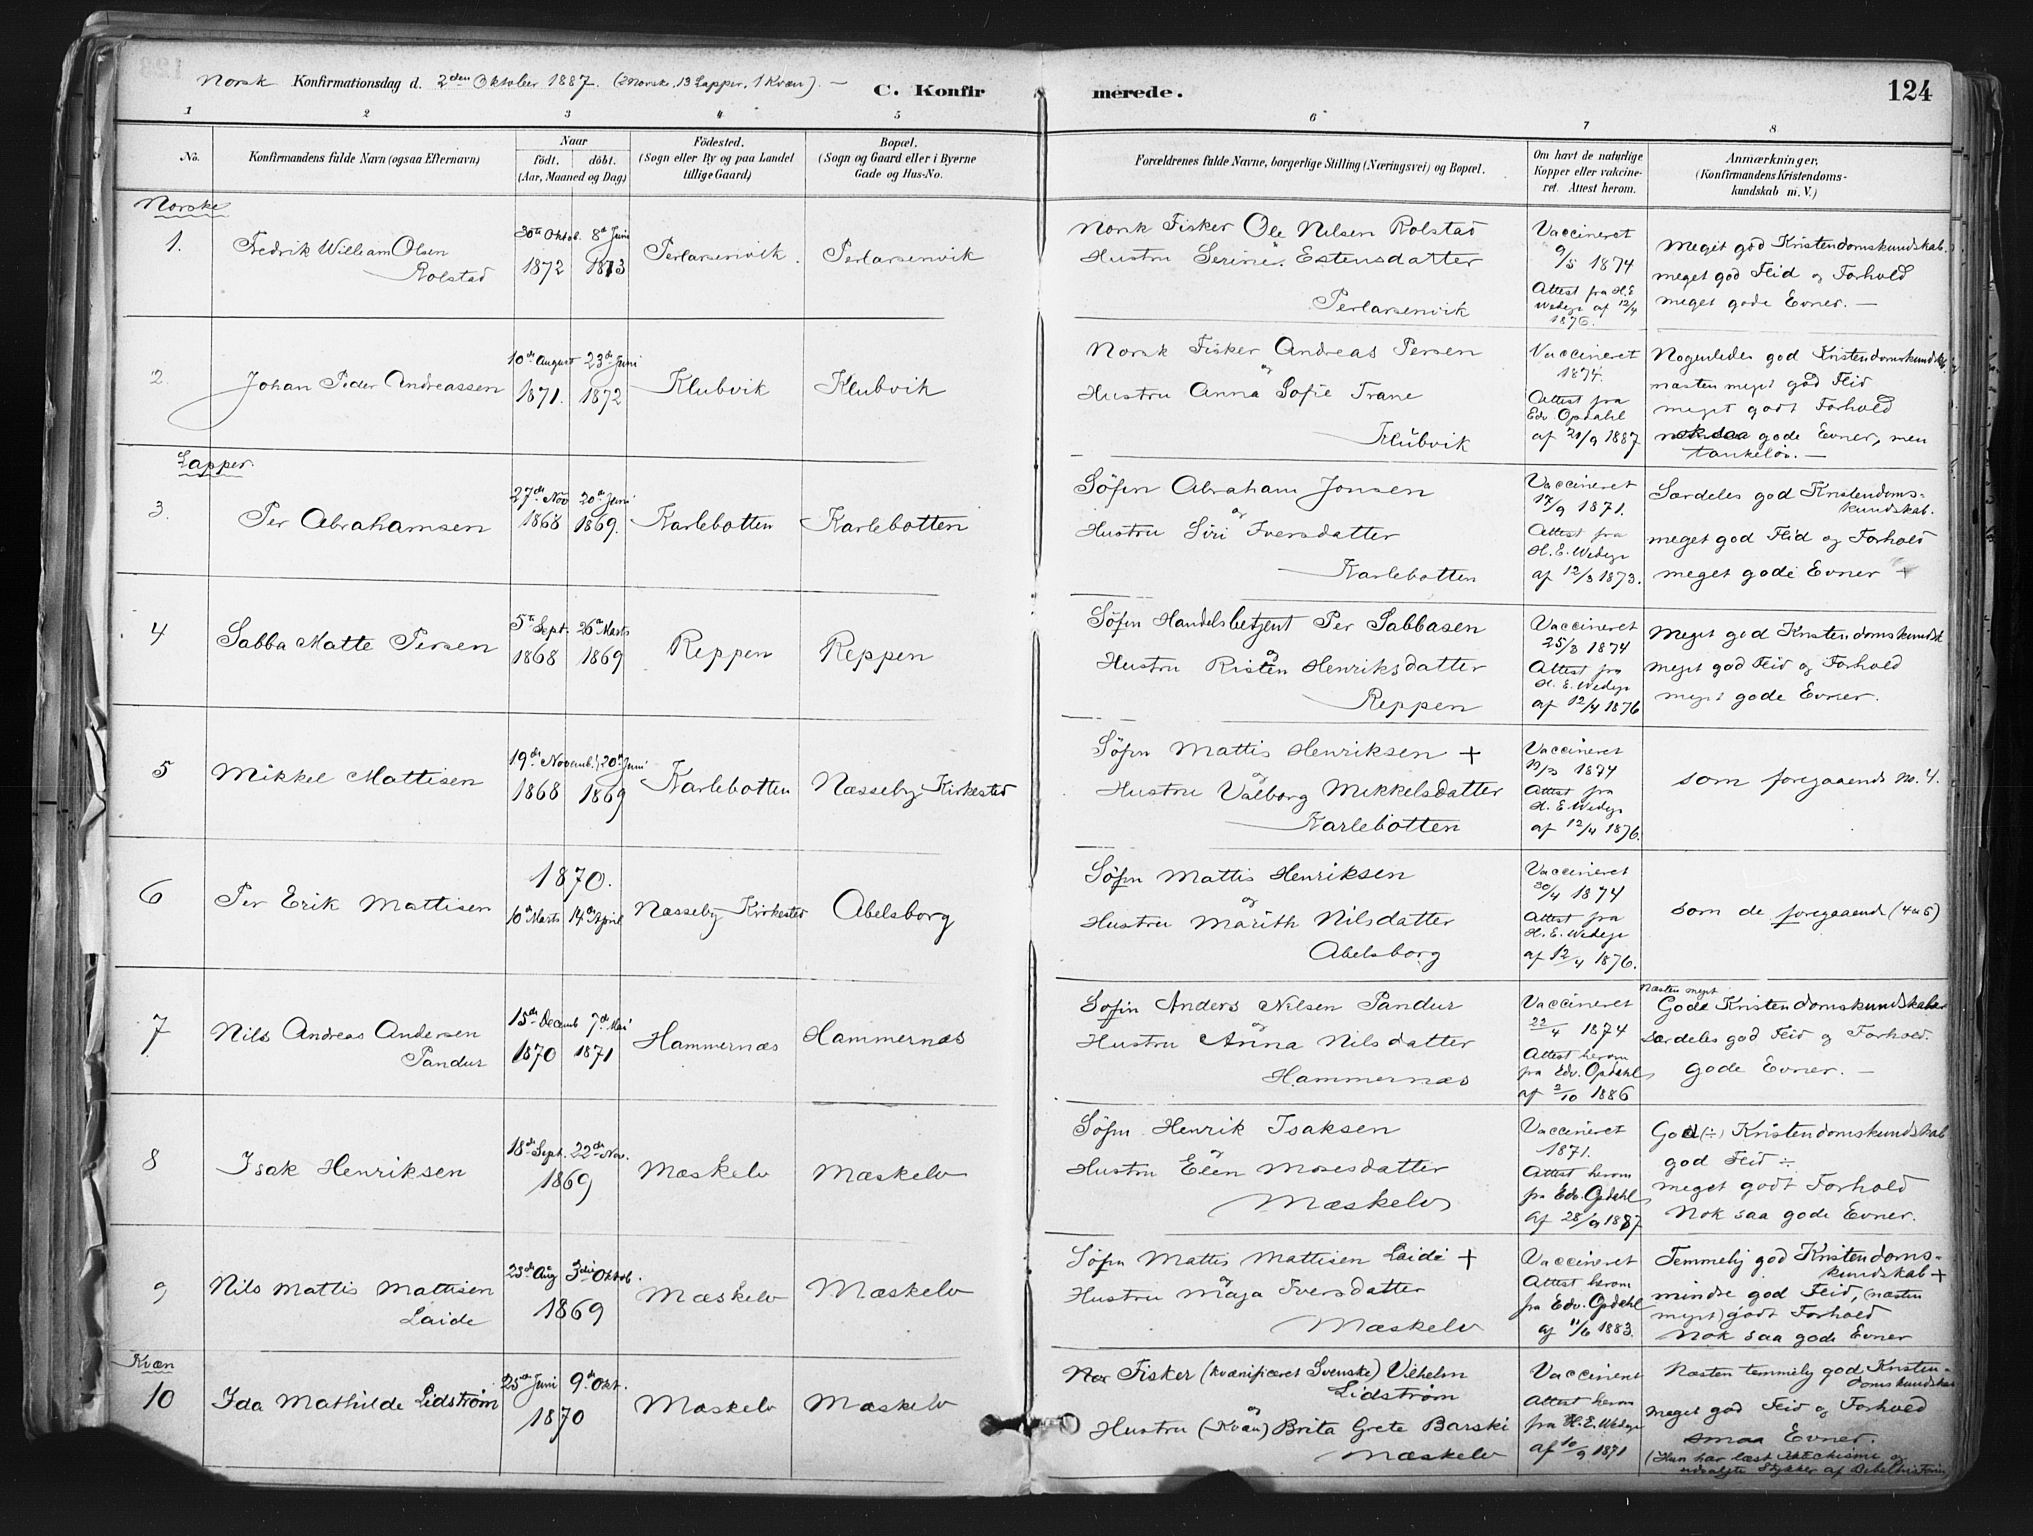 Norsk Konfirmationsdag d. 2den Oktober 1887. (2 Norske, 13 Lapper, 1 Kvæn). —
C. Konfirmerede.
124
1 2 3 4 5 6 7 8
No.
Konfirmandens fulde Navn (ogsaa Efternavn)
Naar
födt. döbt.
(Aar, Maaned og Dag)
Födested.
(Sogn eller By og paa Landet
tillige Gaard)
Bopæl.
(Sogn og Gaard eller i Byerne
Gade og Hus-No.
Forældrenes fulde Navne, borgerlige Stilling (Næringsvei) og Bopæl.
Om havt de naturlige
Kopper eller vakcine-
ret. Attest herom.
Anmærkninger,
(Konfirmandens Kristendoms-
kundskab m. V.)
Norske
1.
Fredrik William Olsen
Rolstad
30te Oktob. 8de Juni
1872 1873
Perlarsenvik.
Perlarsenvik
Norsk Fisker Ole Nilsen Rolstad
Hustru Serine Estensdatter
Perlarsenvik
Vaccineret
9/5 1874
Attest fra H. E.
Wedege af 12/4
1876.
Meget god Kristendomskundskab.
meget god Flid og Forhold
meget gode Evner. —
2.
Johan Peder Andreassen
10de August 23de Juni
1871. 1872
Klubvik
Klubvik
Norsk Fisker Andreas Persen
og
Hustru Anna Sofie Trane
Klubvik
Vaccineret
1874.
Attest fra
Edv. Opdahl
af 21/9 1887
Nogenledes god Kristendomskundsk.
næsten meget god Flid
meget godt Forhold
nok saa gode Evner, men
tankeløs. —
Lapper
3.
Per Abrahamsen
27de Nov 20de Juni
1868 1869.
Karlebotten
Karlebotten
Söfin Abraham Jonsen
og
Hustru Siri Iversdatter
Karlebotten
Vaccineret
17/9 1871.
Attest fra
H. E. Wedege
af 12/3 1873.
Særdeles god Kristendoms-
kundskab.
meget god Flid og Forhold
meget gode Evner +
4
Sabba Matte Persen
5te Sept. 26de Marts
1868 1869
Reppen
Reppen
Söfin Handelsbetjent Per Sabbasen
og
Hustru Risten Henriksdatter
Reppen
Vaccineret
25/3 1874
Attest fra
H. E. Wedege
af 12/4 1876
Meget god Kristendomskundsk
meget god Flid og Forhold
meget gode Evner.
5
Mikkel Mattisen
19de Novemb. 20de Juni
1868 1869
Karlebotten
Næsseby Kirkested
Söfin Mattis Henriksen +
og
Hustru Valborg Mikkelsdatter
Karlebotten
Vaccineret
12/3 1874
Attest fra
H. E. Wedege
af 12/4 1876.
som foregaaende N. 4.
6
Per Erik Mattisen
1870.
10de Marts 14de April
Næsseby Kirkested
Abelsborg
Söfin Mattis Henriksen
og
Hustru Marith Nilsdatter
Abelsborg
Vaccineret
30/4 1874
Attest fra
H. E. Wedege
af 12/4 1876.
som de foregaaend (4 o 5)
7
Nils Andreas Andersen
Pandur
15de Decemb 7de Mai
1870 1871
Hammernæs
Hammernæs
Söfin Anders Nilsen Pandur
og
Hustru Anna Nilsdatter
Hammernæs
Vaccineret
22/4 1874
Attest herom
fra Edv. Opdahl
af 2/10 1886
Næsten meget
Gode Kristendomskundskaber
Særdeles god Flid og Forhold.
Gode Evner. —
8
Isak Henriksen
18de Sept. 22de Nov.
1869
Mæskelv
Mæskelv
Söfin Henrik Isaksen
og
Hustru Elen Mosesdatter
Mæskelv
Vaccineret
1871.
Attest herom
fra Edv. Opdahl
af 28/9 1887
God (÷) Kristendomskundskab
god Flid ÷
meget godt Forhold
Nok saa gode Evner.
9
Nils Mattis Mattisen
Laide
23de Aug 3die Oktob.
1869
Mæskelv
Mæskelv
Söfin Mattis Mattisen Laide +
og
Hustru Maja Iversdatter
Mæskelv
Vaccineret
Attest herom
fra Edv. Opdahl
af 11/6 1883.
Temmelig god Kristendoms-
kundskab +
mindre god Flid, (næsten
meget) godt Forhold
Nok saa gode Evner
Kvæn
10
Ida Mathilde Lidstrøm
25de Juni 9de Okt.
1870
Mæskelv
Mæskelv
Fisker (kvænificeret Svenske) Vilhelm
Lidstrøm
og
Hustru (Kvæn) Brita Grete Barski
Mæskelv
Vaccineret
Attest herom
fra H. E. Wedege
af 10/9 1871
Næsten temmelig god Kristen-
domskundskab
Meget god Flid og Forhold
smaa Evner.
(Hun har læst Katekisme og
udvalgte Stykker af Bibelhistorien)